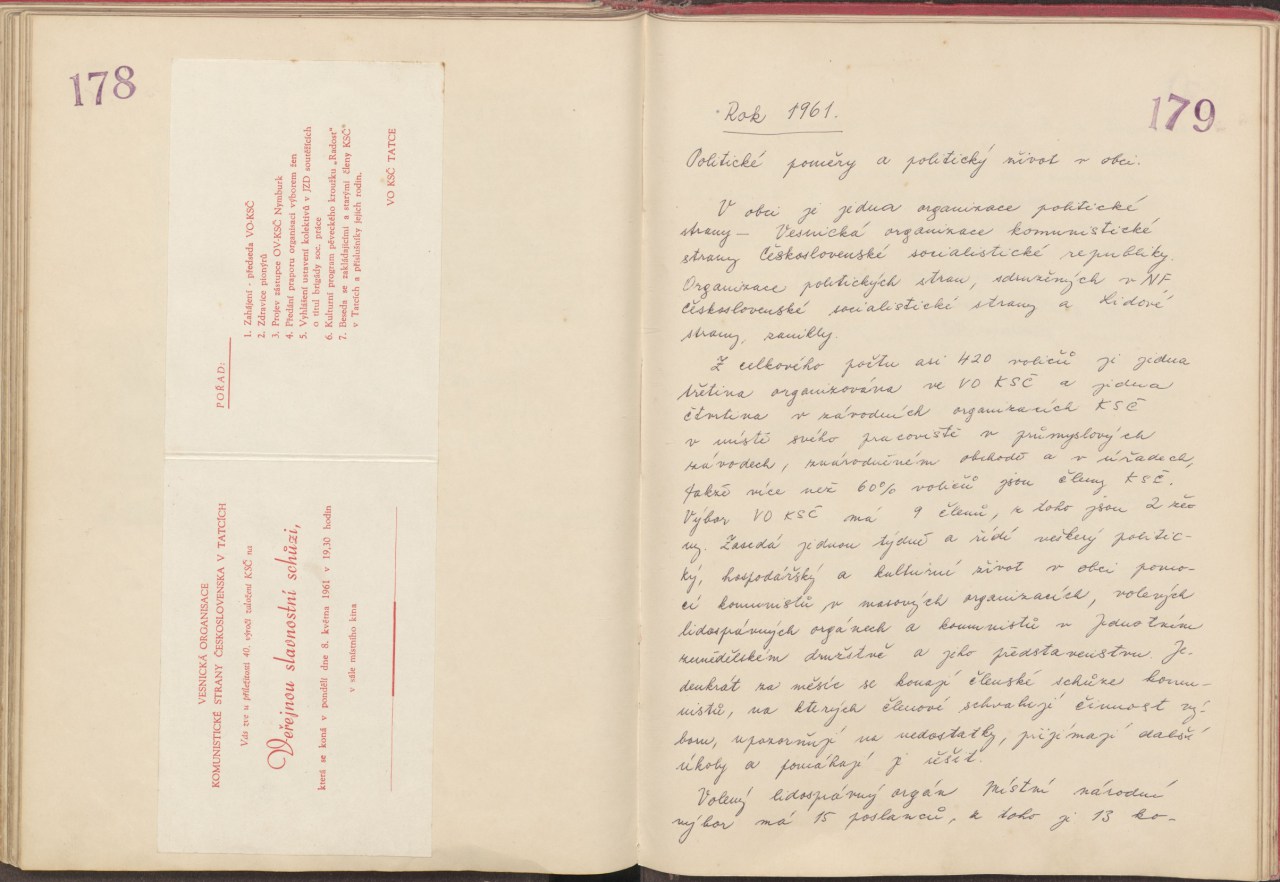 178
VESNICKÁ ORGANISACE
KOMUNISTICKÉ STRANY ČESKOSLOVENSKA V TATCÍCH
Vás zve u příležitosti 40. výročí založení KSČ na
Veřejnou slavnostní schůzi,
která se koná v pondělí dne 8. května 1961 v 19,30 hodin
v sále místního kina
POŘAD:
1. Zahájení - předseda VO-KSČ
2. Zdravice pionýrů
3. Projev zástupce OV-KSČ Nymburk
4. Předání praporu organisaci výborem žen
5. Vyhlášení ustavení kolektivů v JZD soutěžících
o titul brigády soc. práce
6. Kulturní program pěveckého kroužku „Radost"
7. Beseda se zakládajícími a starými členy KSČ
v Tatcích a příslušníky jejich rodin.
VO KSČ TATCE
179
Rok 1961.
Politické poměry a politický život v obci.
V obci je jedna organizace politické
strany – Vesnická organizace komunistické
strany Československé socialistické republiky.
Organizace politických stran, sdružených v NF
Československé socialistické strany a Lidové
strany, zanikly.
Z celkového počtu asi 420 voličů je jedna
třetina organizována ve VO KSČ a jedna
čtvrtina v závodních organizacích KSČ
v místě svého pracoviště v průmyslových
závodech, znárodněném obchodě a v úřadech,
takže více než 60% voličů jsou členy KSČ.
Výbor VO KSČ má 9 členů, z toho jsou 2 že
ny. Zasedá jednou týdně a řídí veškerý politic-
ký, hospodářský a kulturní život v obci pomo-
cí komunistů v masových organizacích, volených
lidosprávných orgánech a komunistů v Jednotném
zemědělském družstvě a jeho představenstvu. Je-
denkrát za měsíc se konají členské schůze komu-
nistů, na kterých členové schvalují činnost vý-
boru, upozorňují na nedostatky, přijímají další
úkoly a pomáhají je řešit.
Volený lidosprávný orgán Místní národní
výbor má 15 poslanců, z toho je 13 ko-